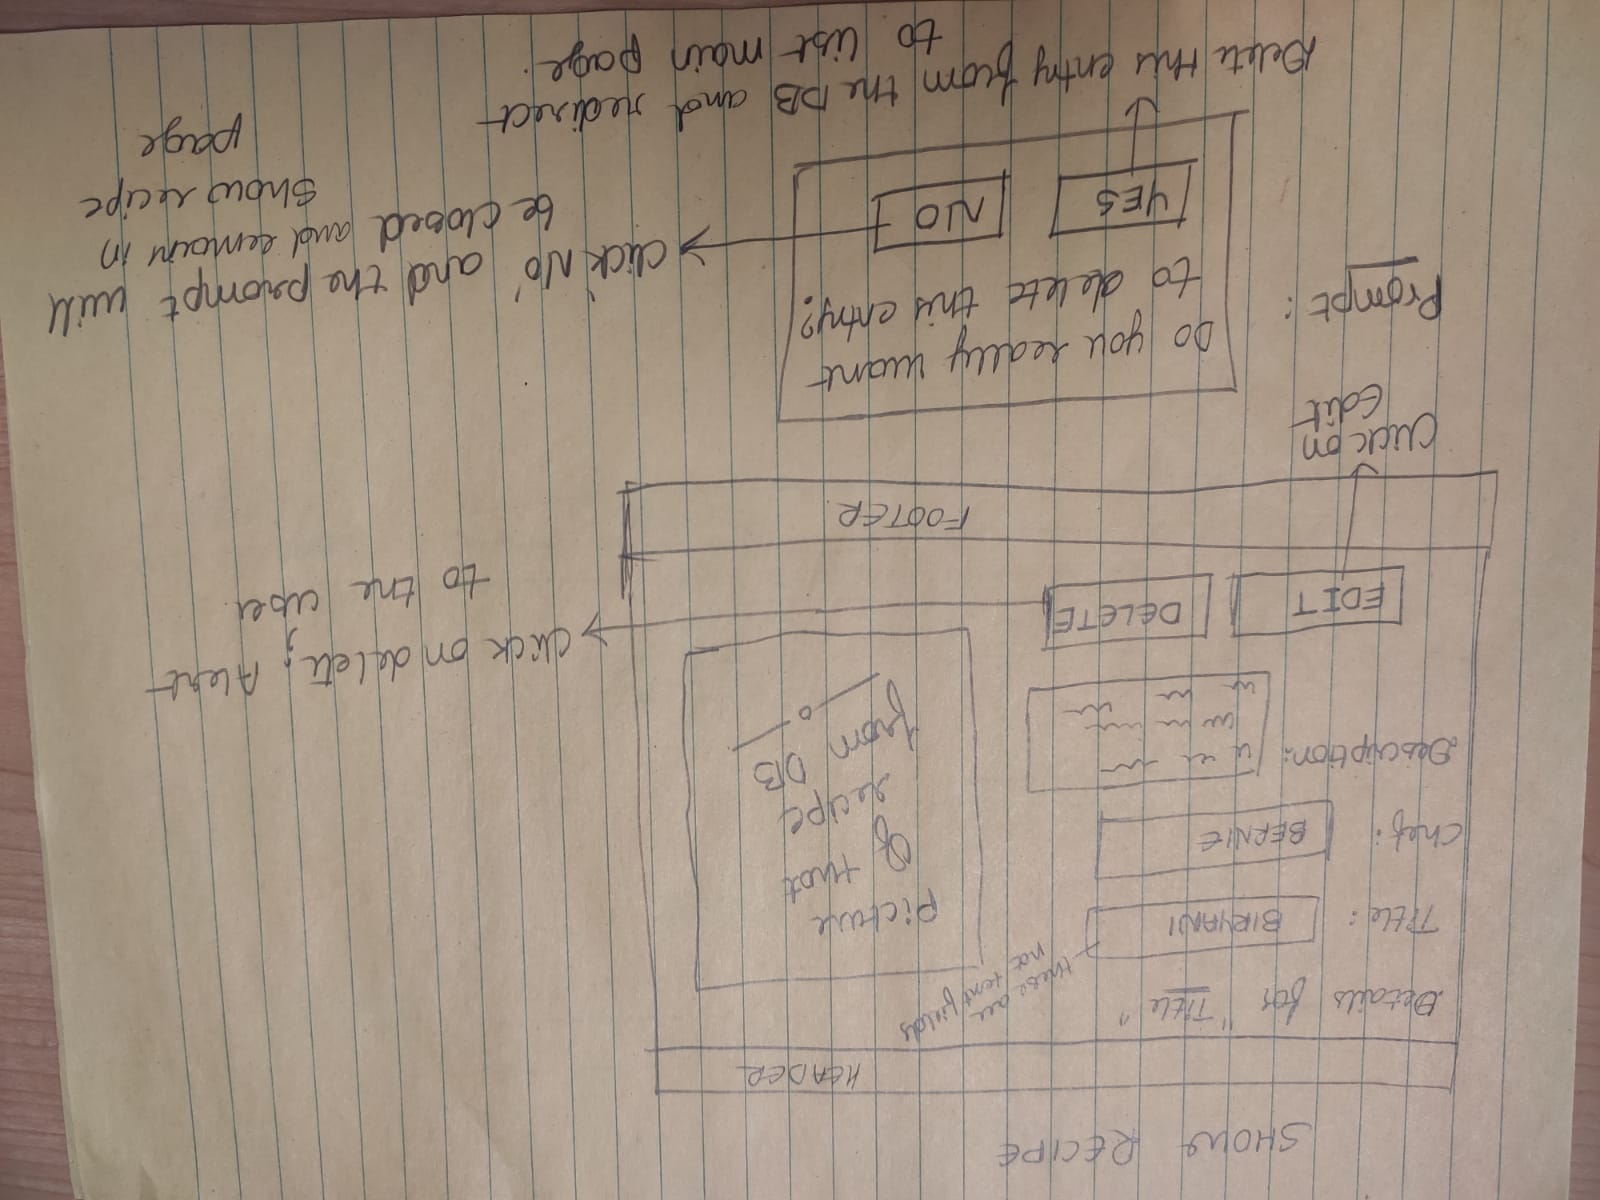 SHOW RECIPE
HEADER
Details for "Title"
these are
not text fields
Title: BIRYANI
Chef: BERNIE
Description:
Picture
Of that
recipe
from DB
EDIT DELETE
Click on delete; Alert
to the user.
FOOTER
Click on
Edit
Prompt:
Do you really want
to delete this entry?
YES NO
Click 'No' and the prompt will
be closed and remain in
Show recipe
page
Delete this entry from the DB and redirect
to list main page.